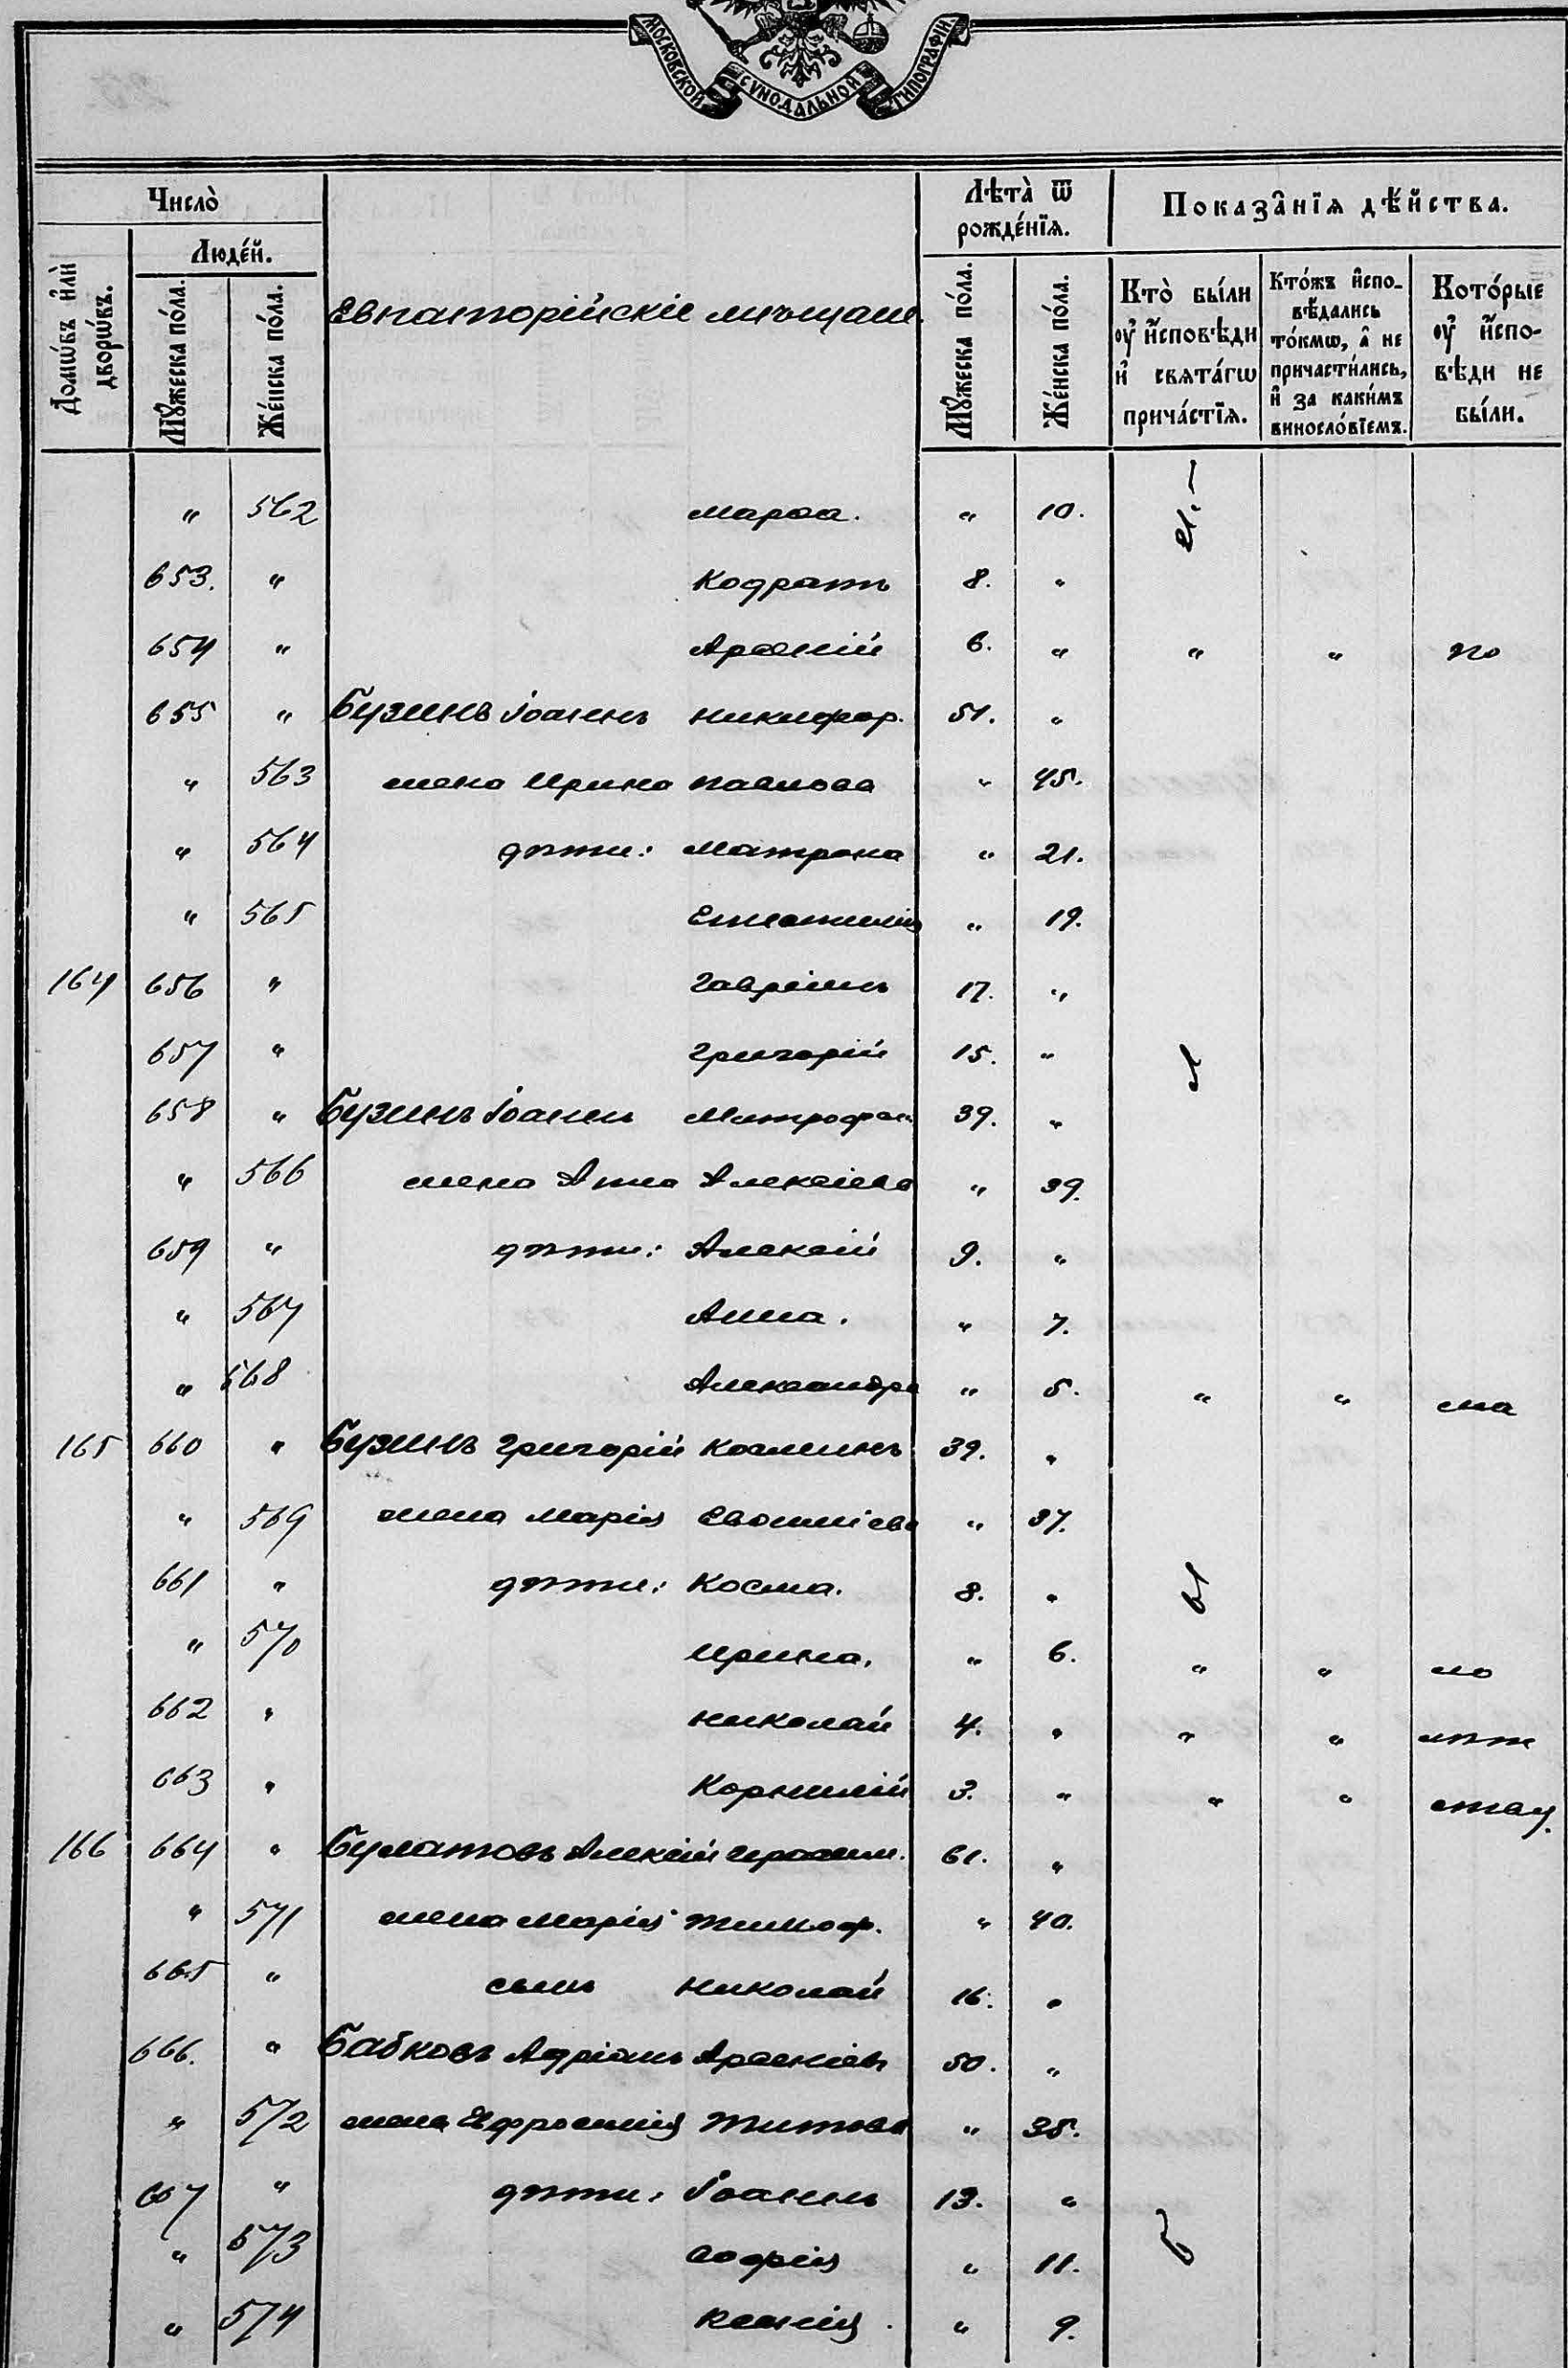 МОСКОВСКОЙ СУНОДАЛЬНОЙ ТИПОГРАФІИ
Число̀
Люде́й.
Домѡ́въ и҆лѝ дворѡ́въ.
Мꙋ́жеска по́ла.
Же́нска по́ла.
Евпаторійскіе мѣщане.
Лѣта̀ ѿ рожде́нїѧ.
Мꙋ́жеска по́ла.
Же́нска по́ла.
Показа̂нїѧ дѣ́йства.
Кто̀ бы́ли ᲂу҆ и҆́сповѣди и҆ свѧта́гѡ прича́стїѧ.
Кто́жъ и҆спо- вѣ́дались то́кмѡ, а҆ не причасти́лись, и҆ за каки́мъ виносло́вїемъ.
Кото́рые ᲂу҆ и҆́спо- вѣди не бы́ли.
" 562 Марѳа. " 10.
653. " Кодратъ 8. "
654 " Арсеній 6. " " " по
655 " Бузинъ Іоаннъ Никифор. 51. "
" 563 жена Ирина Павлова " 45.
" 564 дѣти: Матрона " 21.
" 565 " 19.
164 656 " Гавріилъ 17. "
657 " Григорій 15. "
658 " Бузинъ Іоаннъ Митрофан. 39. "
" 566 жена Анна Алексіева " 39.
659 " дѣти: Алексій 9. "
" 567 Анна. " 7.
" 568 Александра " 5. " " ма
165 660 " Бузинъ Григорій Косминъ 39. "
" 569 жена Марія " 37.
661 " дѣти: Косма. 8. "
" 570 Ирина. " 6. " " ло
662 " Николай 4. " " " лѣт
663 " Корнилій 3. " " " ству.
166 664 " Булатовъ Алексій Герасим. 61. "
" 571 жена Марія Тимоф. " 40.
665 " сынъ Николай 16. "
666. " Бабковъ Адріанъ Арсеніевъ 50. "
" 572 жена Ефросинія Титова " 35.
667 " дѣти: Іоаннъ 13. "
" 573 Софія " 11.
" 574 Ксенія. " 9.